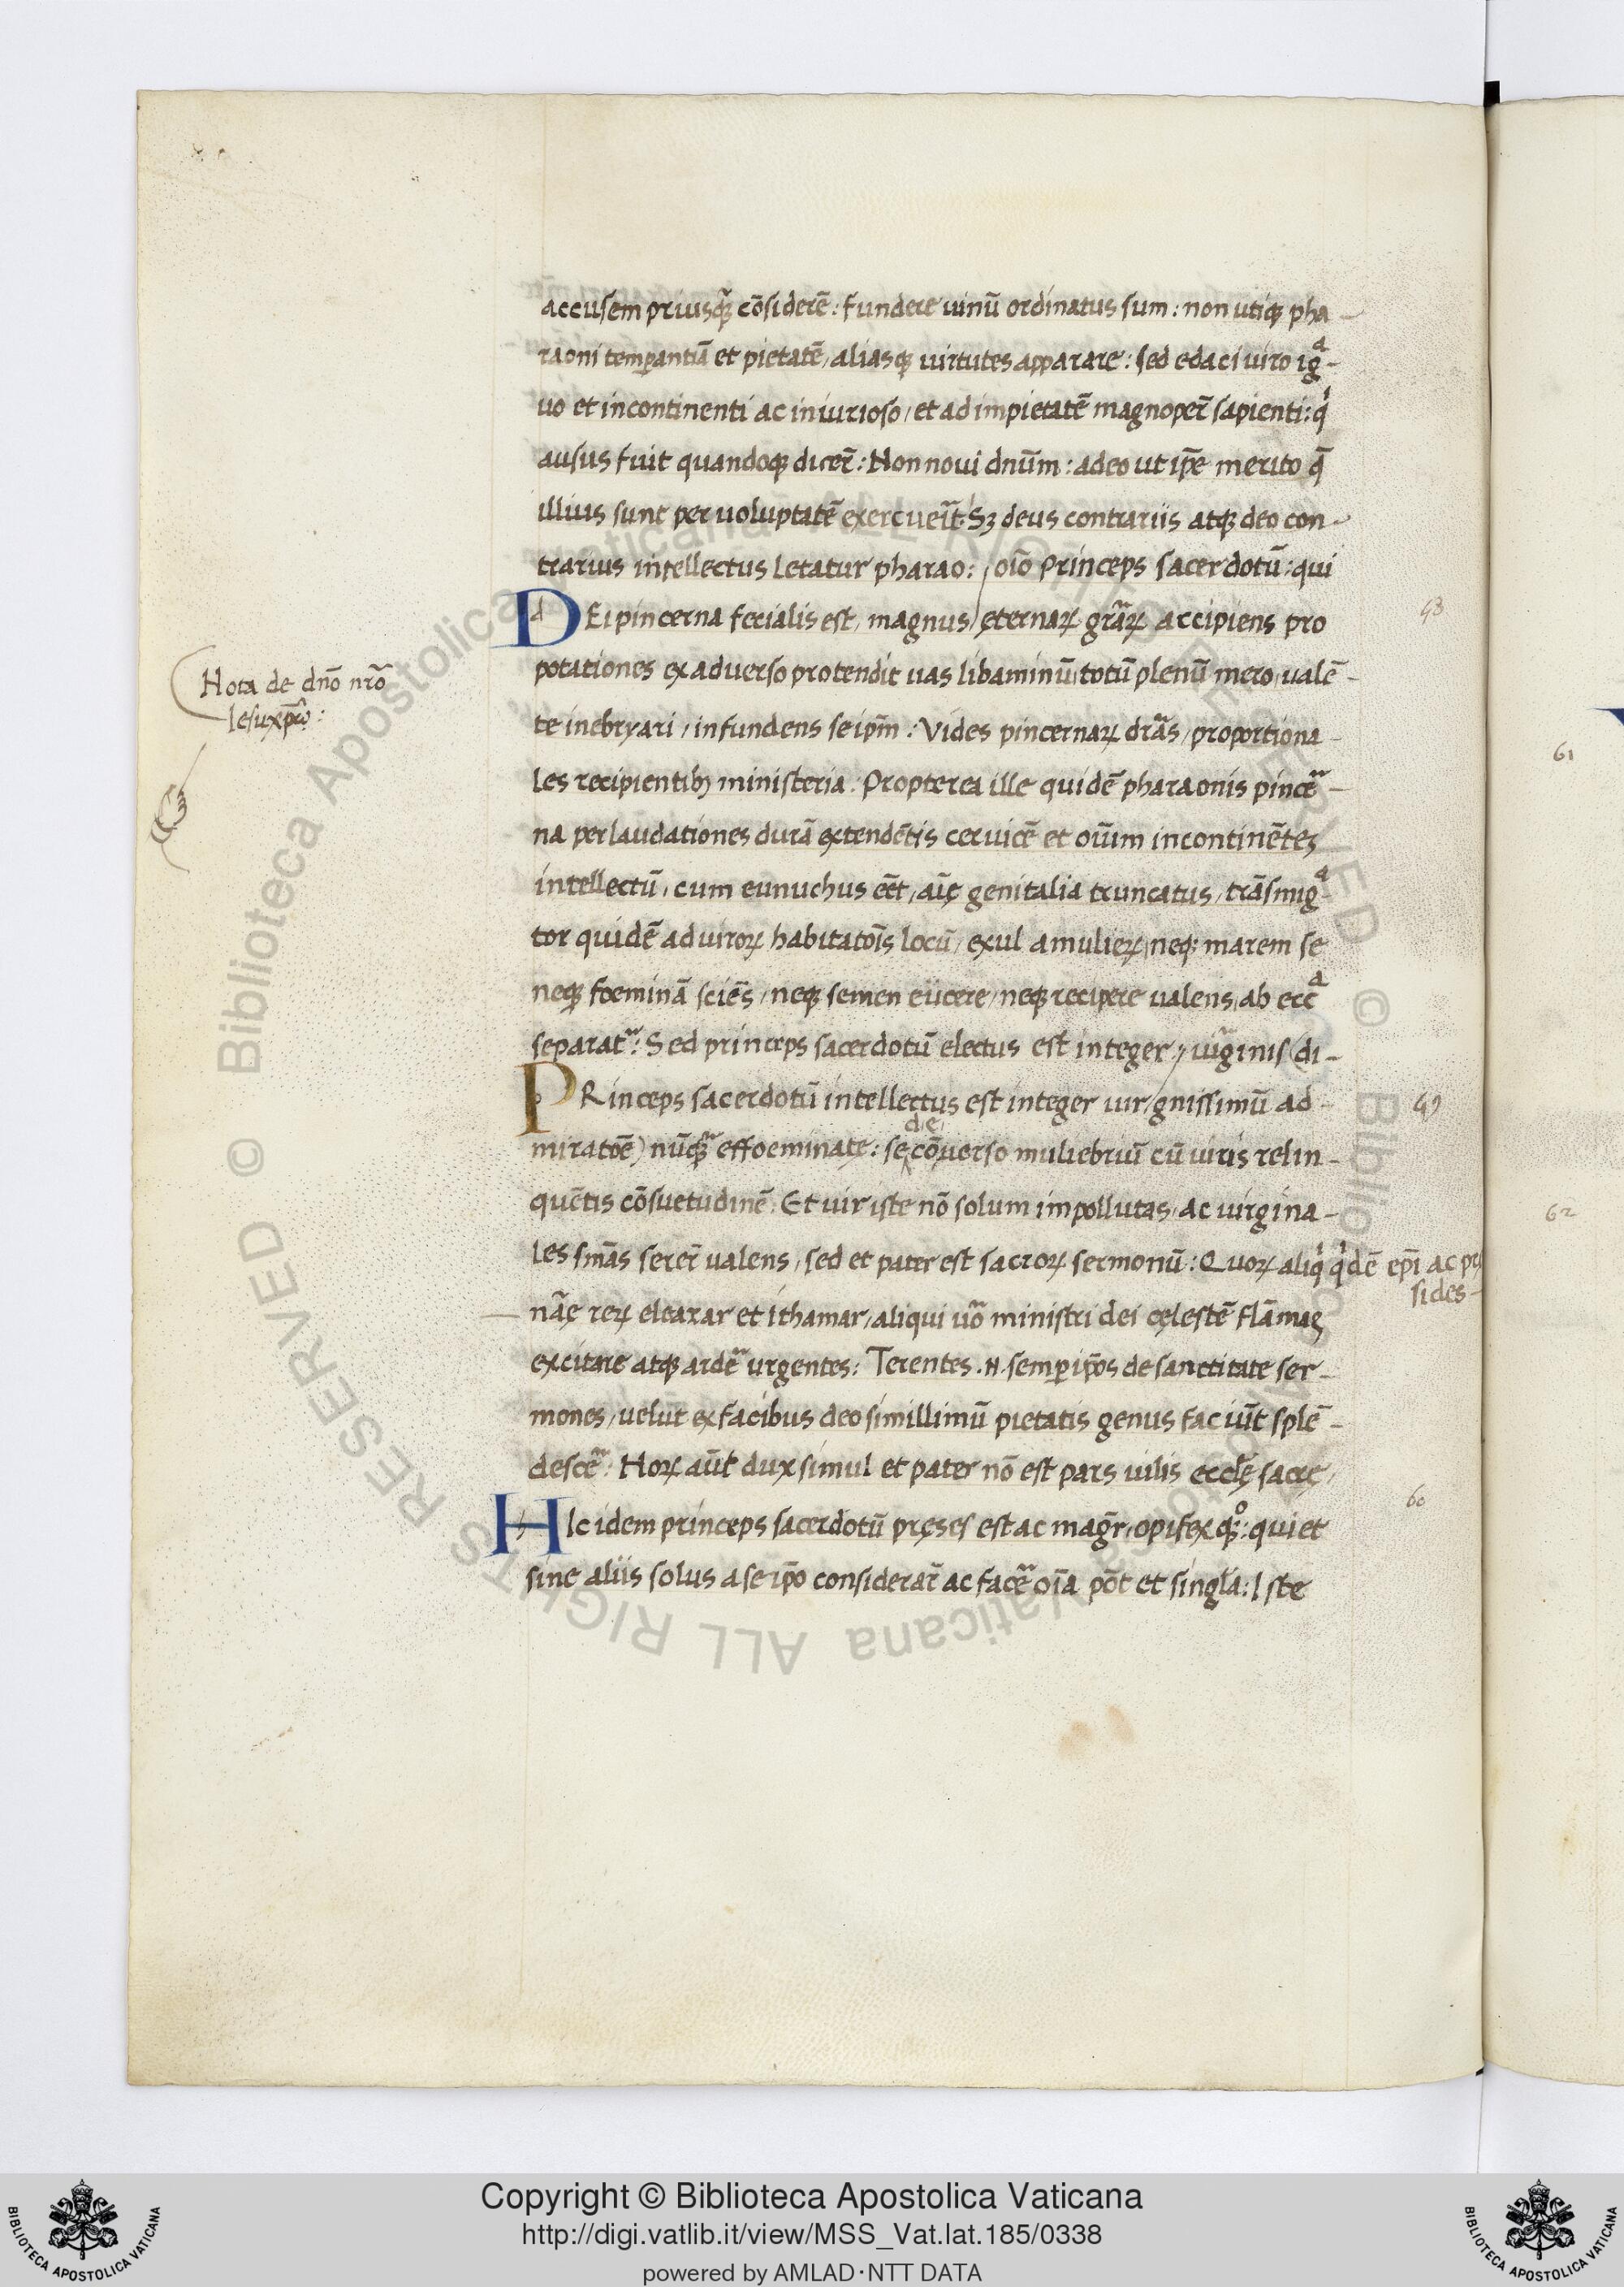 accusem priusq̃ cõsiderẽ: fundere uinũ ordinatus sum: non utiq; pha-
raoni temperantiã et pietatẽ, aliasq; uirtutes apparare: sed edaci uiro ig^a-
uo et incontinenti ac iniurioso, et ad impietatẽ magnoper̃ sapienti: q^i
ausus fuit quandoq; dicer̃: Non noui dnũm: adeo ut ip̃e merito q̃
illius sunt per uoluptatẽ exercueĩt. Sʒ deus contrariis atq; deo con-
trarius intellectus letatur pharao: oĩo princeps sacerdotũ: qui
DEi pincerna fecialis est, magnus, ęternaꝝ gr̃aꝝ accipiens pro 48
potationes ex aduerso protendit uas libaminũ, totũ plenũ mero, ualẽ-
Nota de dnõ nrõ
Iesuxp̃o:
te inebryari, infundens seip̃m: Vides pincernaꝝ dr̃as, proportiona-
les recipientibꝫ ministeria: Propterea ille quidẽ pharaonis pincẽ-
na per laudationes durã extendẽtis ceruicẽ et oĩum incontinẽtem
intellectũ, cum eunuchus eẽt, aĩę genitalia truncatus, trãsmig^a
tor quidẽ ad uiroꝝ habitatoĩs locũ, exul a mulieꝝ, neq; marem se
neq; foeminã sciẽs, neq; semen eiicere, neq; recipere ualens, ab ecc^a
separat̃: Sed princeps sacerdotũ electus est integer, uĩginis (di-
PRinceps sacerdotũ intellectus est integer uir, gnissimũ ad- 49
miratõe) nũq̃ effoeminatę: sed e cõuerso muliebriũ cũ uiris relin-
quẽtis cõsuetudinẽ: Et uir iste nõ solum impollutas, ac uirgina-
les smãs serer̃ ualens, sed et pater est sacroꝝ sermonũ: Quoꝝ aliq^i q^idẽ ep̃i ac pr
sides
nãę reꝝ eleazar et ithamar, aliqui uõ ministri dei cęlestẽ flãmam
excitare atq; ardẽ urgentes: Terentes .n. semper ip̃os de sanctitate ser-
mones, uelut ex facibus deo simillimũ pietatis genus faciũt splẽ-
descẽ: Hoꝝ aũt dux simul et pater nõ est pars uilis eccl̃ę sacrę,
HIc idem princeps sacerdotũ pręses est ac mag̃r, opifex q;^o: qui et 60
sine aliis solus a se ip̃o considerar̃ ac facẽ oĩa põt et singl̃a: Iste
61
62
Copyright © Biblioteca Apostolica Vaticana
http://digi.vatlib.it/view/MSS_Vat.lat.185/0338
powered by AMLAD·NTT DATA